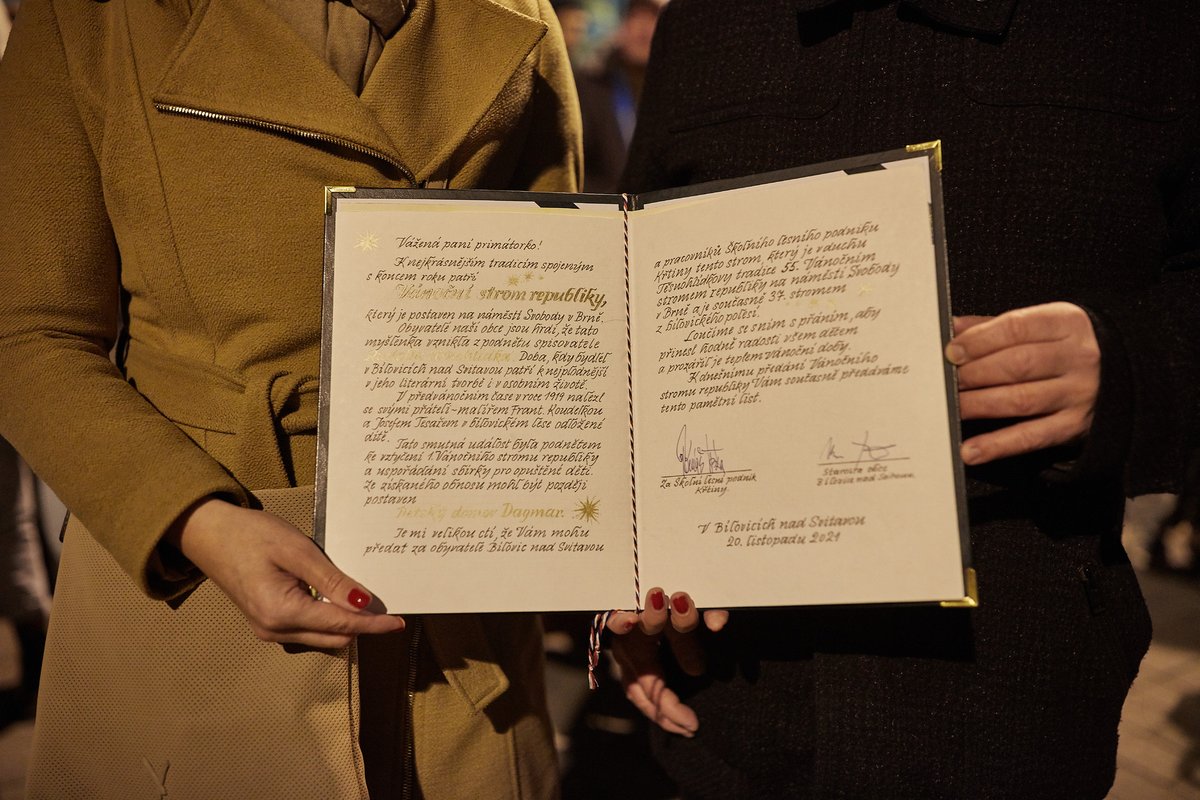 Vážená paní primátorko!
K nejkrásnějším tradicím spojeným
s koncem roku patří
Vánoční strom republiky,
který je postaven na náměstí Svobody v Brně.
Obyvatelé naší obce jsou hrdi, že tato
myšlenka vznikla z podnětu spisovatele
Doba, kdy bydlel
v Bílovicích nad Svitavou patří k nejplodnější
v jeho literární tvorbě i v osobním životě.
V předvánočním čase v roce 1919 nalezl
se svými přáteli - malířem Frant. Koudelkou
a Josefem Tesařem v bílovickém lese odložené
dítě.
Tato smutná událost byla podnětem
ke vztyčení 1. Vánočního stromu republiky
a uspořádání sbírky pro opuštěné děti.
Ze získaného obnosu mohl být později
postaven
Dětský domov Dagmar.
Je mi velikou ctí, že Vám mohu
předat za obyvatele Bílovic nad Svitavou
a pracovníků Školního lesního podniku
Křtiny tento strom, který je v duchu
Těsnohlídkovy tradice 55. Vánočním
stromem republiky na náměstí Svobody
v Brně a je současně 37. stromem
z bílovického polesí.
Loučíme se s ním s přáním, aby
přinesl hodně radosti všem dětem
a prozářil je teplem vánoční doby.
K dnešnímu předání Vánočního
stromu republiky Vám současně předáváme
tento pamětní list.
Za Školní lesní podnik
Křtiny
Starosta obce
Bílovice nad Svitavou
V Bílovicích nad Svitavou
20. listopadu 2021